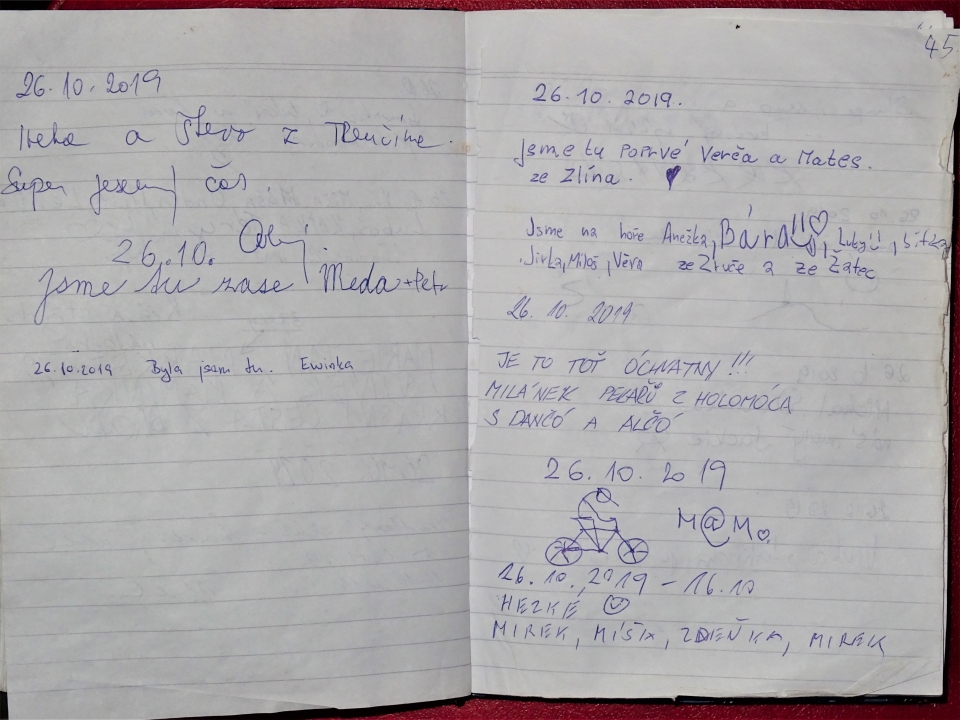 26.10.2019
a Števo z Trenčína.
Super jesenný čas
26.10.
Jsme tu zase Meda + Petr
26.10.2019 Byla jsem tu. Ewinka
45
26.10.2019.
Jsme tu poprvé Verča a Mates.
ze Zlína.
Jsme na hoře Anežka, Bára,
Jirka, Miloš, Věra ze Zruče a ze Žatec
26.10.2019
JE TO TOŤ ÓCHVATNY!!!
MILÁNEK PEKAŘŮ Z HOLOMÓCA
S DANČÓ A ALČÓ
26.10.2019
M@M
26.10.2019 - 16.10
HEZKÉ
MIREK, MÍŠA, ZDEŇKA, MIREK